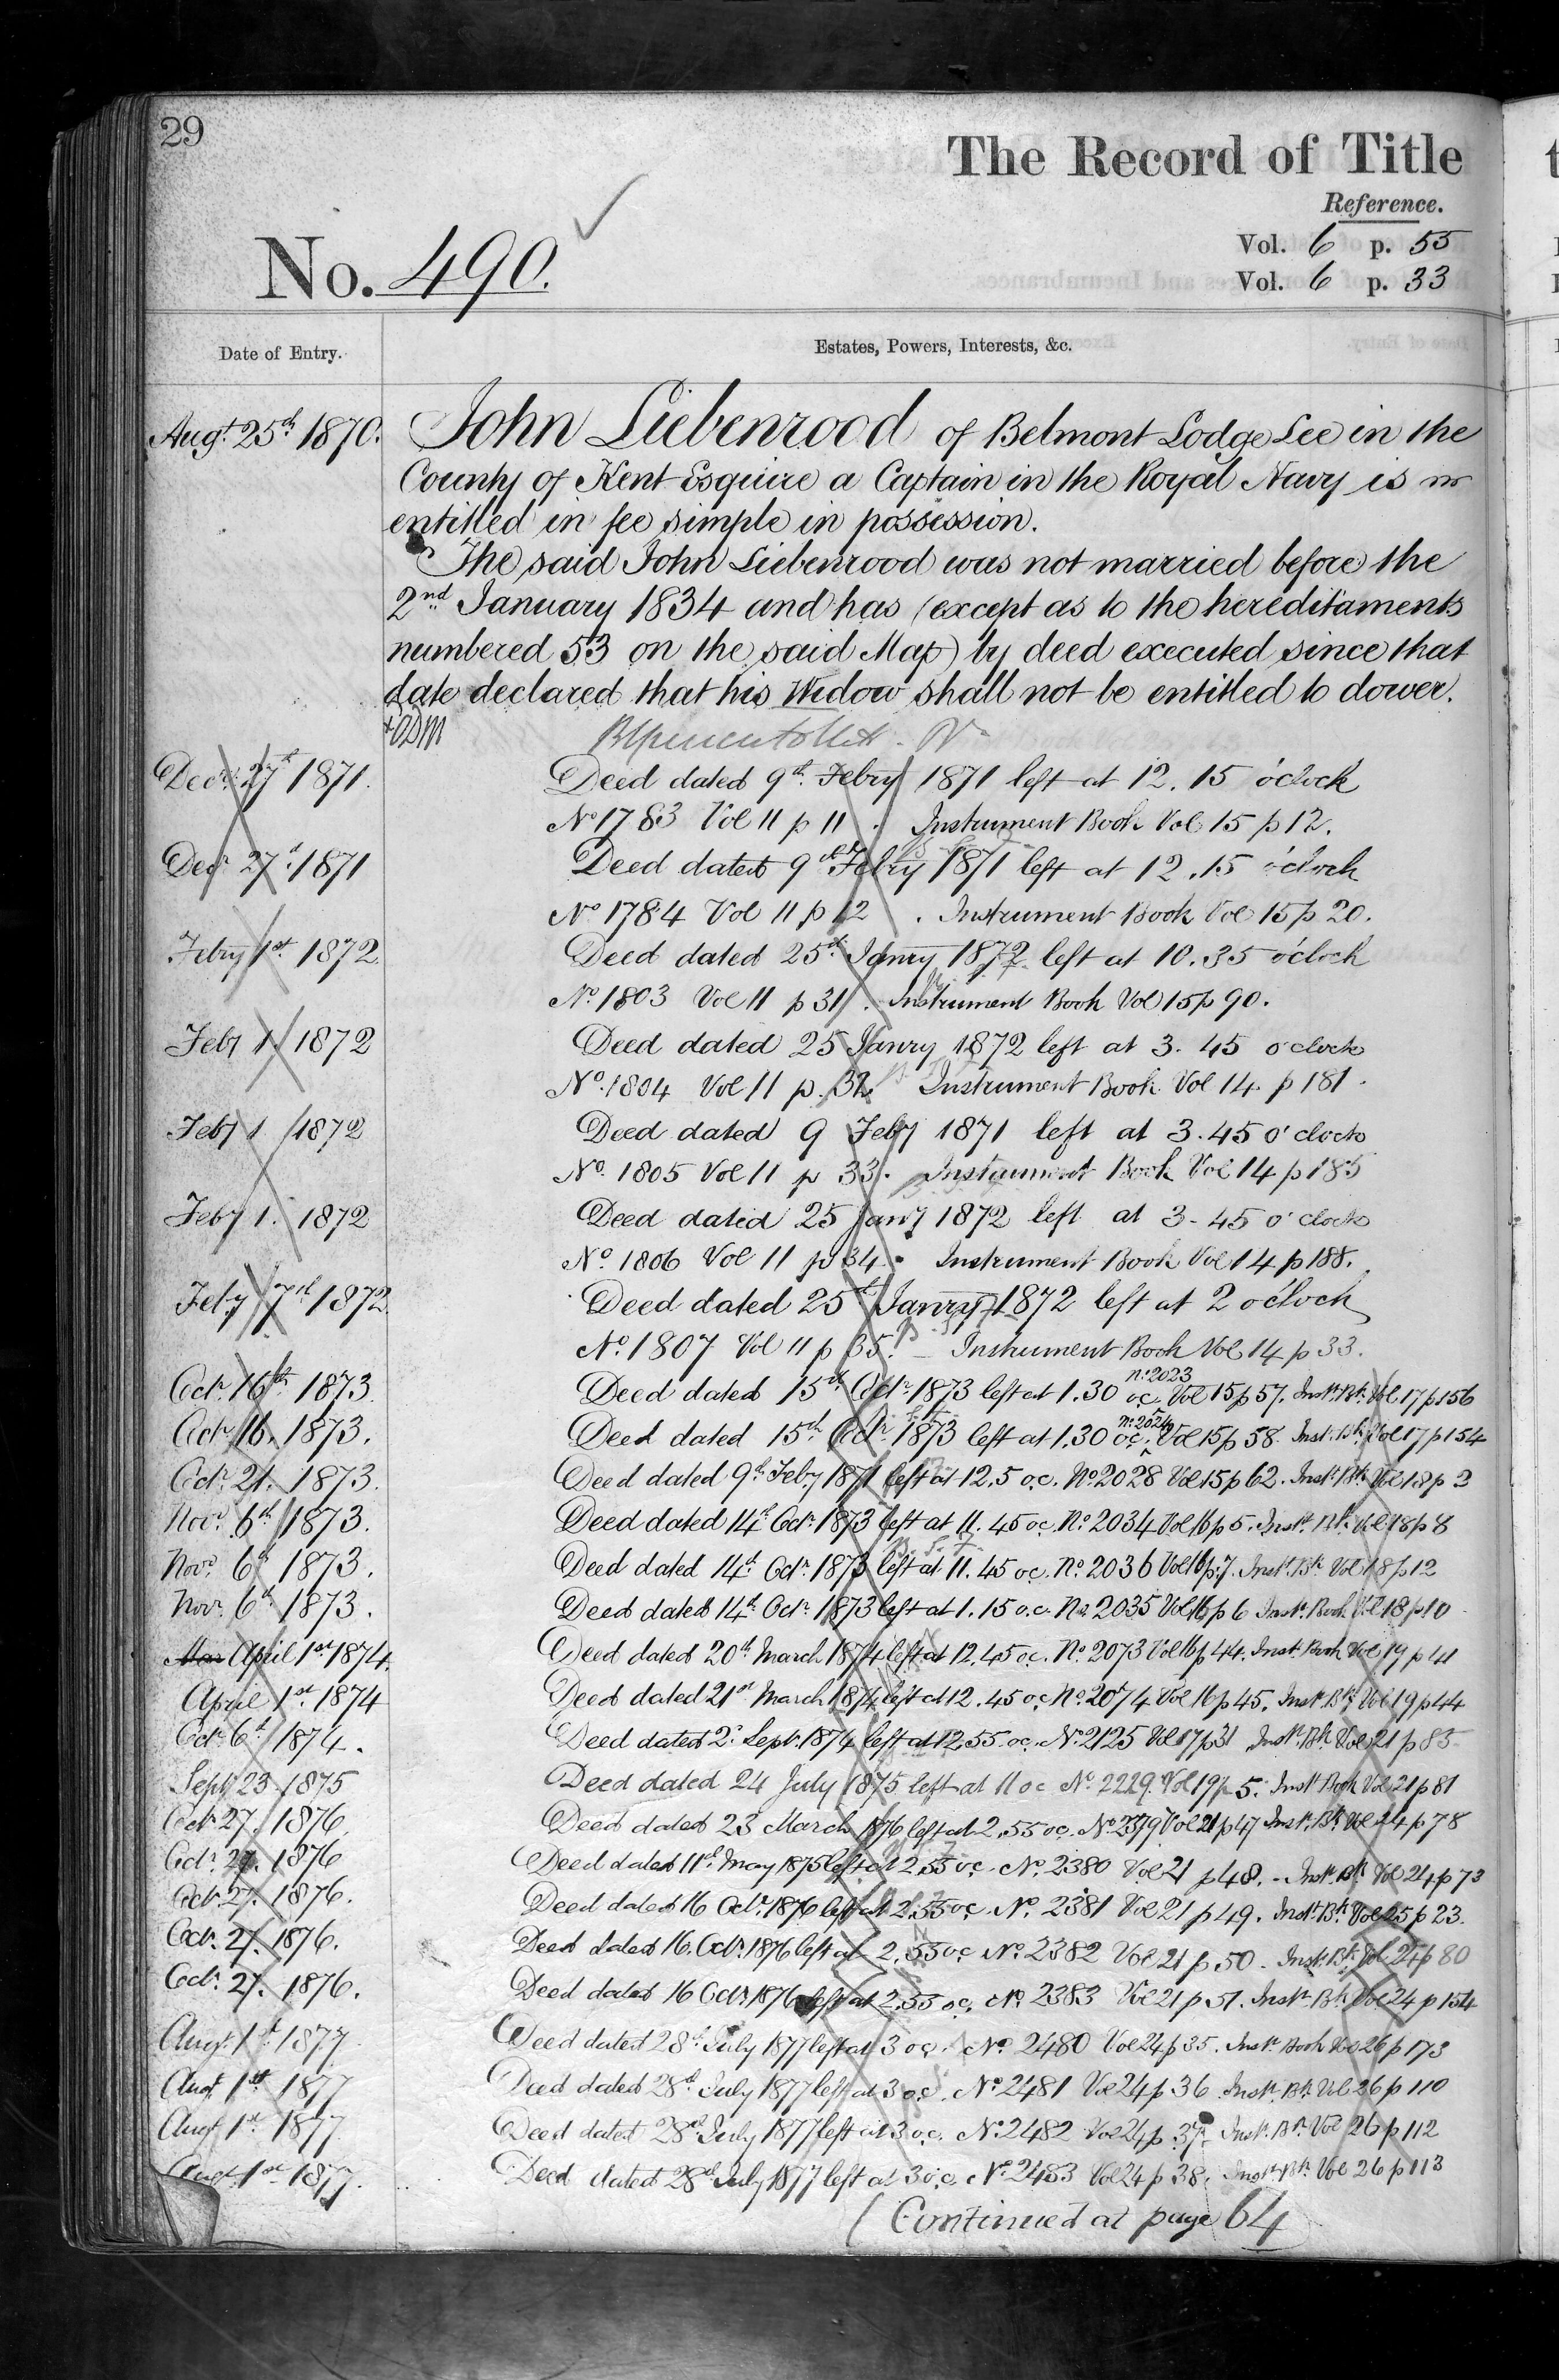 29
The Record of Title
Reference.
No. 490.
Vol. 6 p. 55
Vol. 6 p. 33
Date of Entry. Estates, Powers, Interests, &c.
Augt. 25th 1870. John Liebenrood of Belmont Lodge Lee in the
County of Kent Esquire a Captain in the Royal Navy is
entitled in fee simple in possession.
The said John Liebenrood was not married before the
2nd January 1834 and has (except as to the hereditaments
numbered 53 on the said Map) by deed executed since that
date declared that his Widow shall not be entitled to dower.
Decr. 27th 1871. Deed dated 9th Febry 1871 left at 12.15 o'clock
No 1783 Vol 11 p 11. Instrument Book Vol 15 p 12.
Decr 27th 1871 Deed dated 9th Febry 1871 left at 12.15 o'clock
No 1784 Vol 11 p 12. Instrument Book Vol 15 p 20.
Febry 1st 1872. Deed dated 25th Janry 1872 left at 10.35 o'clock
No. 1803 Vol 11 p 31. Instrument Book Vol 15 p 90.
Feby 1 1872 Deed dated 25 Janry 1872 left at 3.45 o'clock
No. 1804 Vol 11 p. 32 Instrument Book Vol 14 p 181.
Feby 1 1872 Deed dated 9 Feby 1871 left at 3.45 o'clock
No. 1805 Vol 11 p 33. Instrument Book Vol 14 p 185
Feby 1. 1872 Deed dated 25 Jany 1872 left at 3-45 o'clock
No. 1806 Vol 11 p 34. Instrument Book Vol 14 p 188.
Feby 7th 1872. Deed dated 25th Janry 1872 left at 2 o'clock
No. 1807 Vol 11 p 35. Instrument Book Vol 14 p 33.
Octr. 16th 1873 Deed dated 15th Octr. 1873 left at 1.30 oc. no. 2023 Vol 15 p 57. Inst. Bk. Vol. 17 p 156
Octr. 16. 1873. Deed dated 15th Octr. 1873 left at 1.30 oc. no. 2024 Vol 15 p 58. Inst. Bk. Vol 17 p 154
Octr. 21. 1873. Deed dated 9th Feby 1871 left at 12.5 o.c. No 2028 Vol 15 p 62. Inst. Bk Vol 18 p 3
Novr. 6th 1873. Deed dated 14th Octr. 1873 left at 11.45 oc. No. 2034 Vol 16 p 5. Inst. Bk. Vol 18 p 8
Novr. 6th 1873. Deed dated 14th Octr. 1873 left at 11.45 oc. No. 2036 Vol 16 p. 7. Inst. Bk Vol 18 p 12
Novr. 6th 1873. Deed dated 14th Octr. 1873 left at 1.15 o.c. No. 2035 Vol 16 p 6 Inst. Book Vol 18 p 10
Mar April 1st 1874. Deed dated 20th March 1874 left at 12.45 oc. No. 2073 Vol 16 p 44. Inst. Book Vol 19 p 41
April 1st 1874 Deed dated 21st March 1874 left at 12.45 oc No. 2074 Vol 16 p 45. Inst. Bk. Vol 19 p 44
Octr. 6th 1874. Deed dated 2d Sept. 1874 left at 12.55 oc. No. 2125 Vol 17 p 31 Inst. Bk. Vol 21 p 83
Sept 23. 1875 Deed dated 24 July 1875 left at 11 oc No. 2229. Vol 19 p 5. Inst. Book Vol 21 p 81
Octr 27. 1876. Deed dated 23 March 1876 left at 2.55 oc. No. 2379 Vol 21 p 47 Inst. Bk Vol 24 p 78
Octr. 27. 1876 Deed dated 11th May 1875 left at 2.55 oc. No. 2380 Vol 21 p 48. - Inst. Bk Vol 24 p 73
Octr 27. 1876. Deed dated 16 Octr. 1876 left at 2.55 oc. No. 2381 Vol 21 p 49. Inst. Bk. Vol 25 p 23.
Octr. 27. 1876. Deed dated 16. Octr. 1876 left at 2.55 oc No. 2382 Vol 21 p. 50. Inst. Bk. Vol. 24 p 80
Octr. 27. 1876. Deed dated 16 Octr. 1876 left at 2.55 oc. No. 2383 Vol 21 p 51. Inst. Bk. Vol 24 p 154
Augt. 1st 1877 Deed dated 28th July 1877 left at 3 oc. No. 2480 Vol 24 p 35. Inst. Book Vol 26 p 173
Augt. 1st 1877 Deed dated 28th July 1877 left at 3 oc. No. 2481 Vol 24 p 36 Inst. Bk. Vol 26 p 110
Augt. 1st 1877 Deed dated 28th July 1877 left at 3 oc. No. 2482 Vol 24 p 37. Inst. Bk. Vol 26 p 112
Augt. 1st 1877. Deed dated 28th July 1877 left at 3 oc. No. 2483 Vol 24 p 38. Inst. Bk. Vol 26 p 113
(Continued at page 64